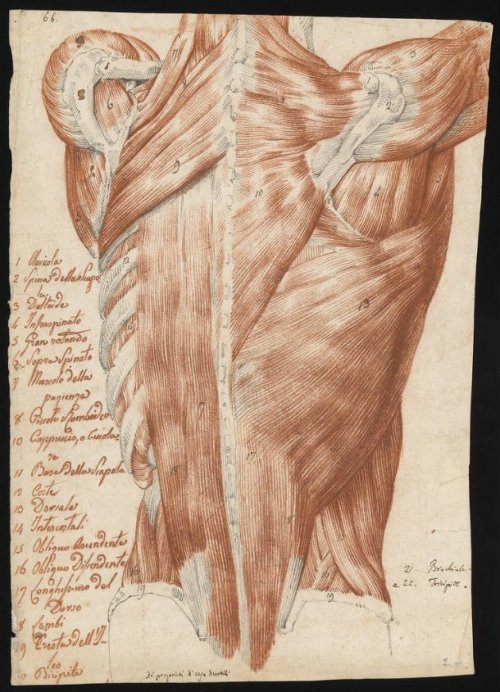 66.
1 Clavicola
2 Spina della Scap
3 Deltoide
4 Infraspinato
5 Gran rotondo
6 Sopra Spinato
7 Muscolo della
pazienza
8 Piccolo Romboideo
10 Cappuccio, o Cucola
re
11 Base della Scapola
12 Coste
13 Dorsale
14 Intercostali
15 Obliquo Ascendente
16 Obliquo Discendente
17 Longhissimo del
Dorso
8 Lombi
19 Cresta dell'
Bicipite
21. Brachiale
22. Tricipite.